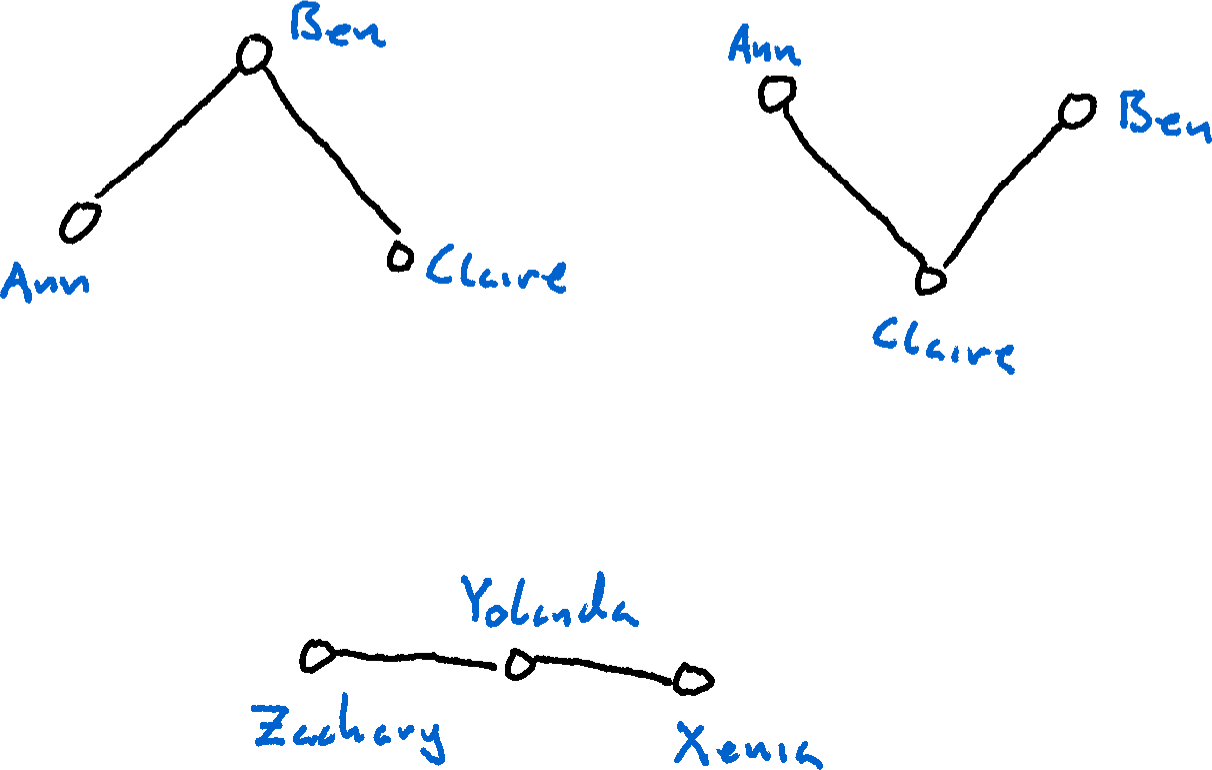 Ben
Ann
Claire
Ann
Ben
Claire
Yolanda
Zachary
Xenia